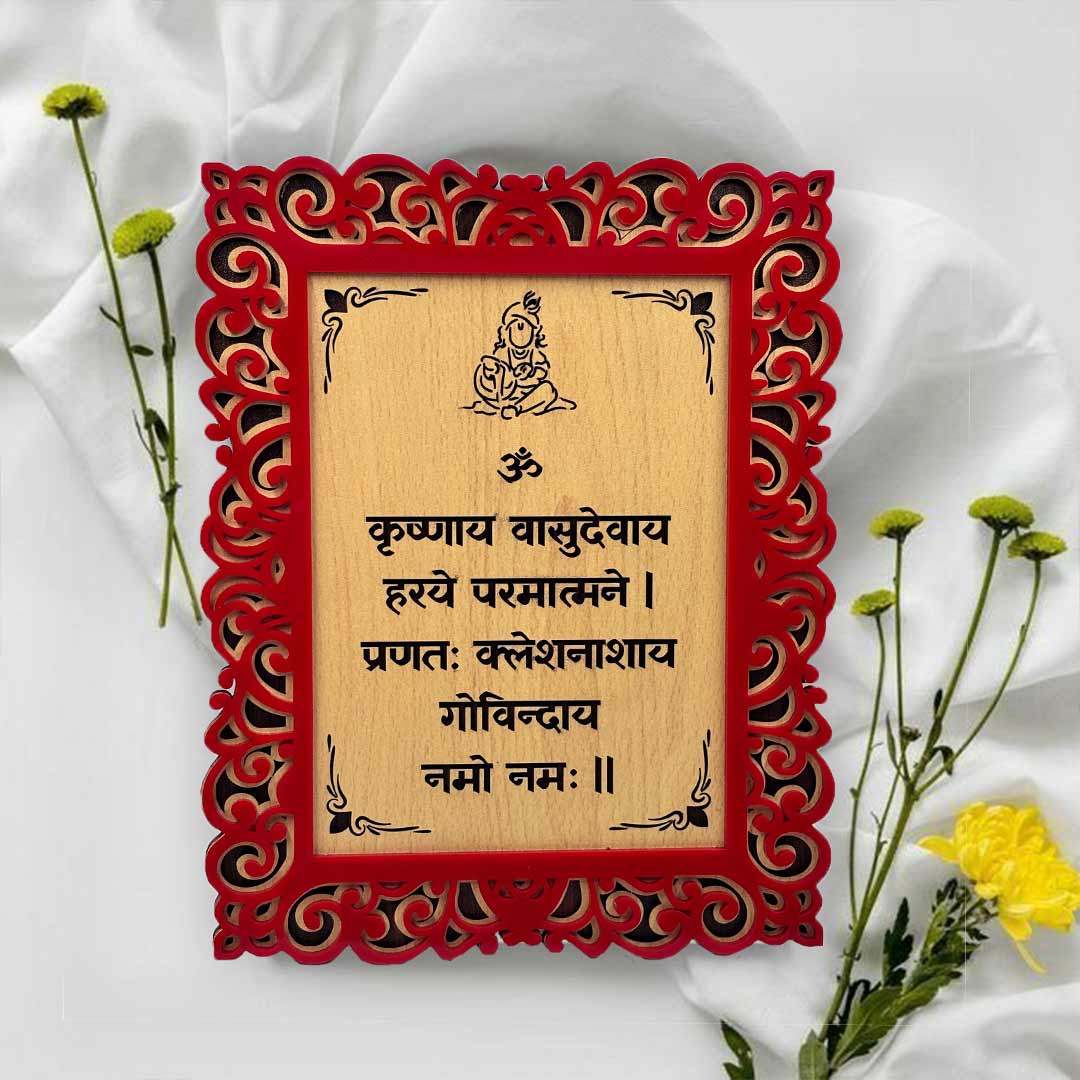 ॐ
कृष्णाय वासुदेवाय
हरये परमात्मने।
प्रणतः क्लेशनाशाय
गोविन्दाय
नमो नमः॥